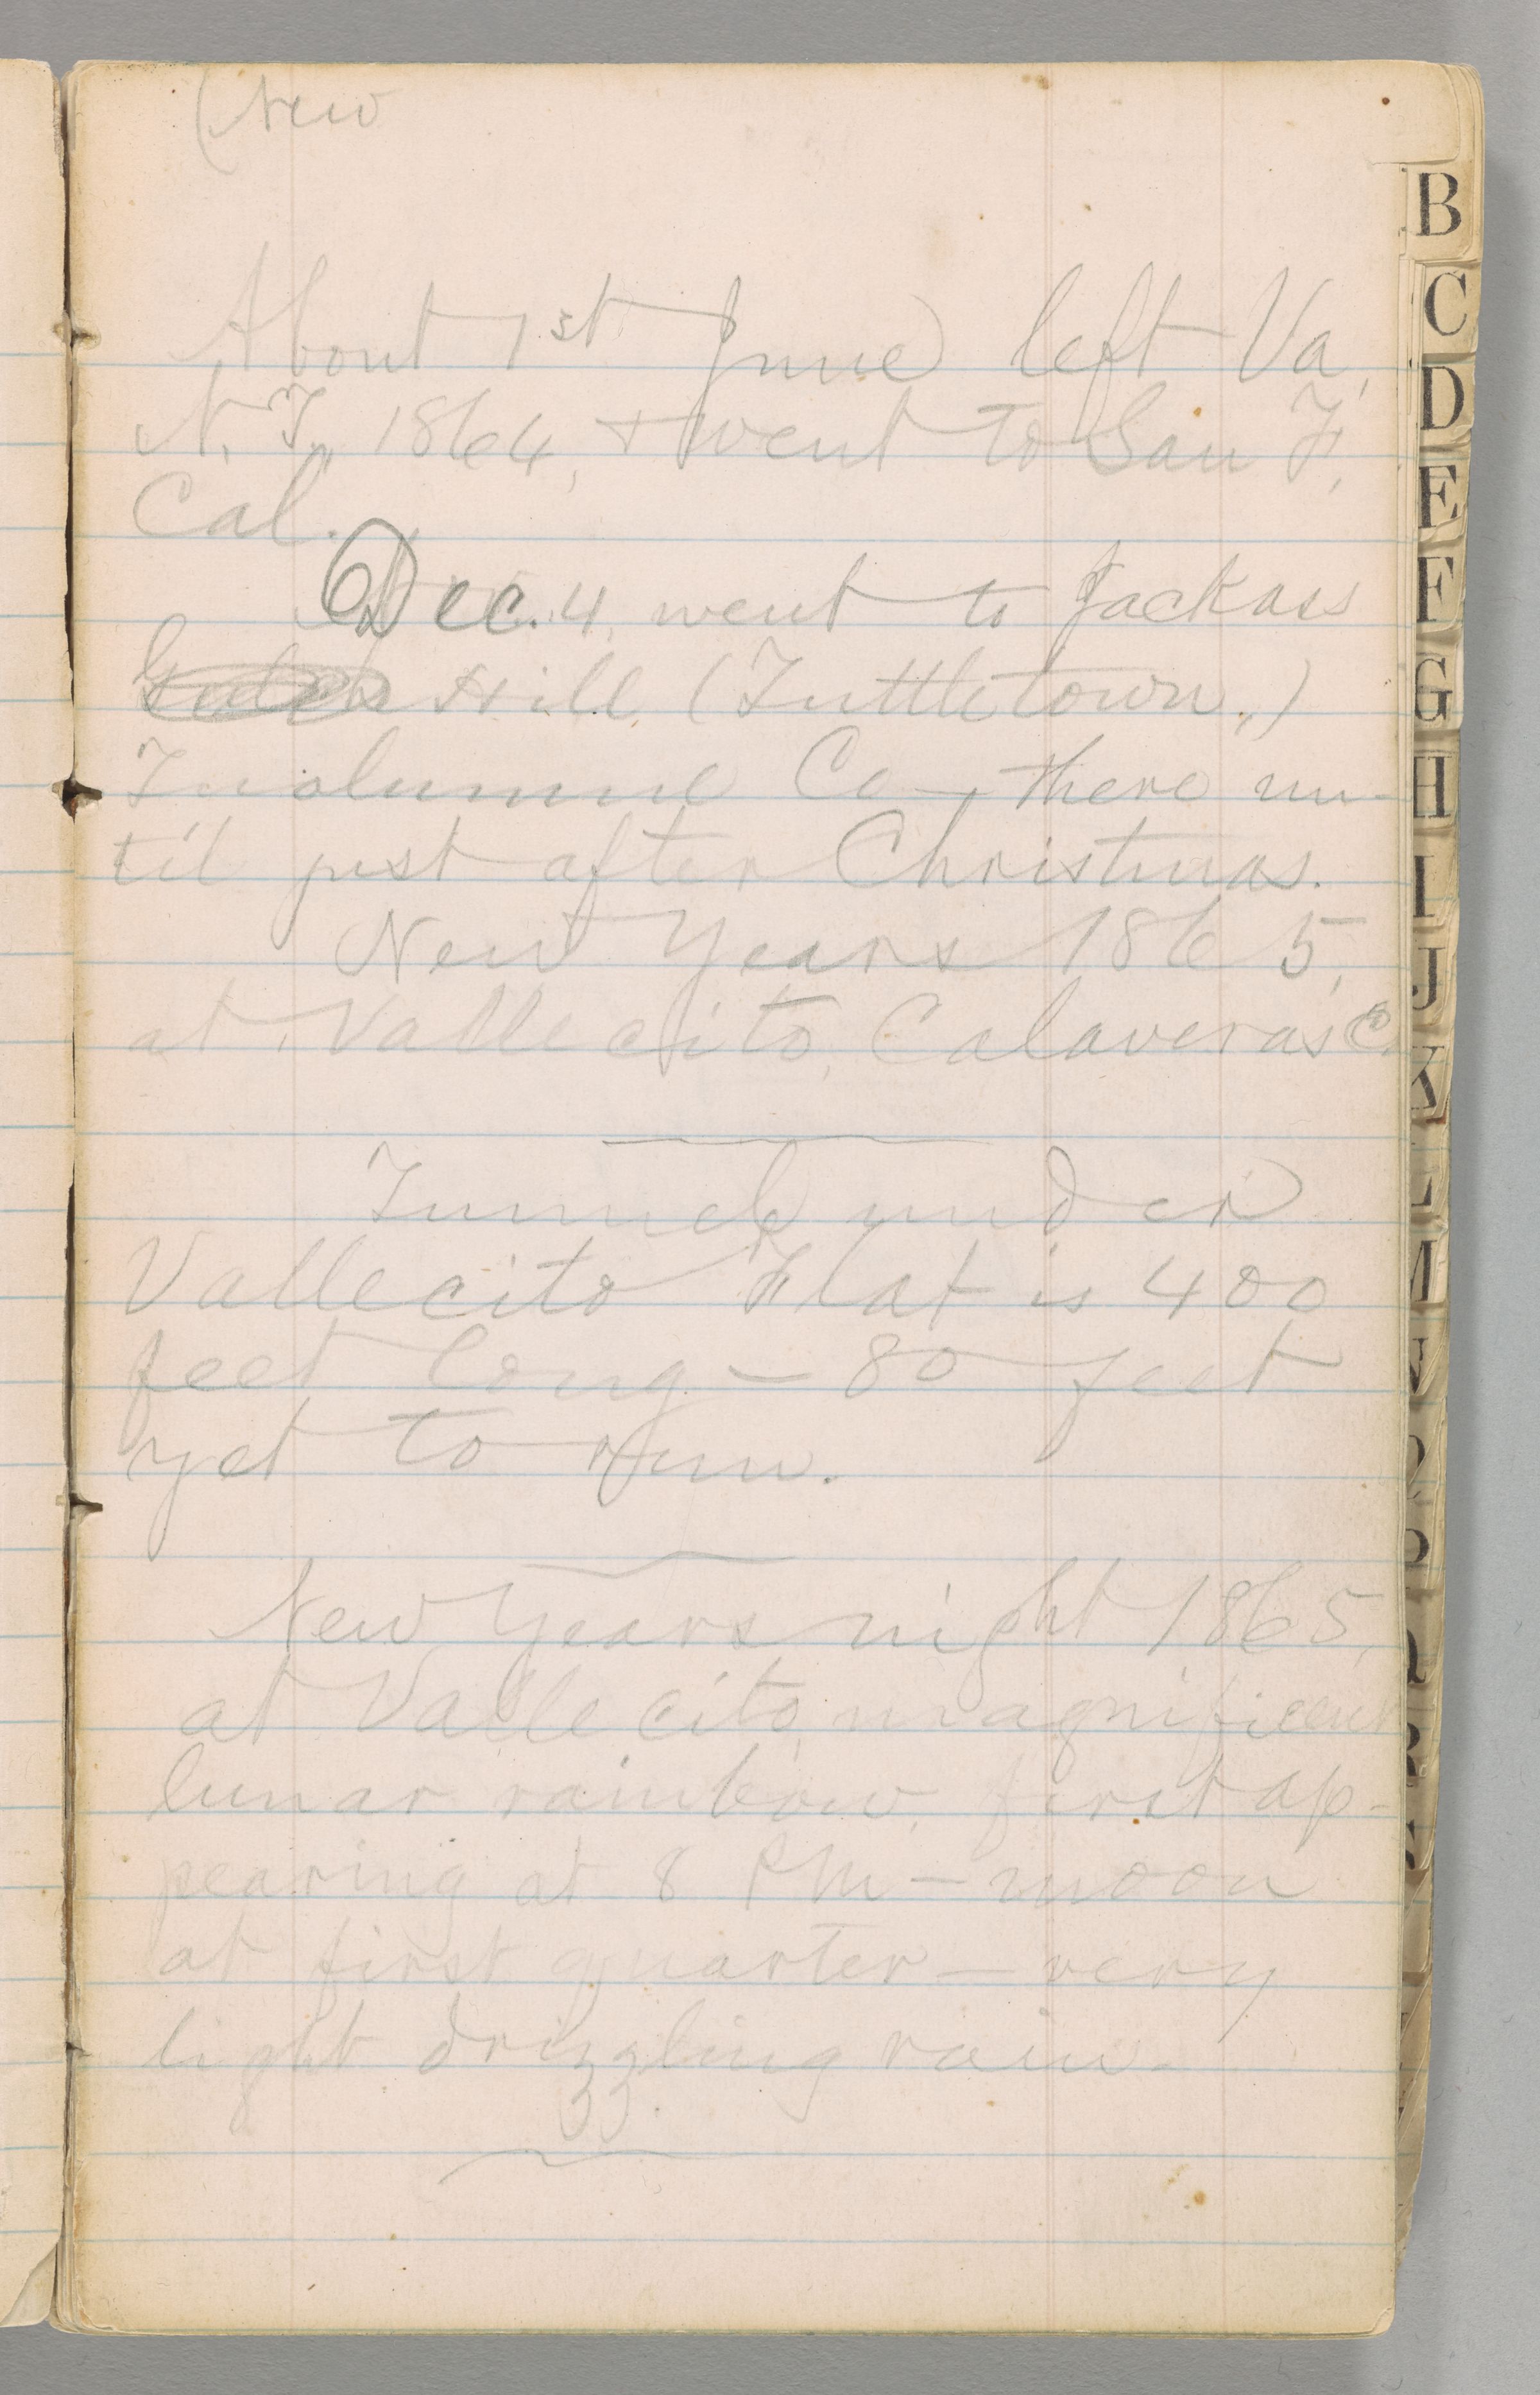 (New
About 1st June left Va,
N. T. 1864, + went to San F,
Cal.
Dec. 4, went to Jackass
Gulch Hill (Tuttletown,)
Tuolumne Co — there un-
til just after Christmas.
New Years 1865,
at Vallecito, Calaveras Co.
Tunnel under
Vallecito Flat is 400
feet long — 80 feet
yet to run.
New Years night 1865,
at Vallecito, magnificent
lunar rainbow, first ap-
pearing at 8 PM — moon
at first quarter — very
light drizzling rain.
B
C
D
E
F
G
H
I
J
K
L
M
N
O
P
Q
R